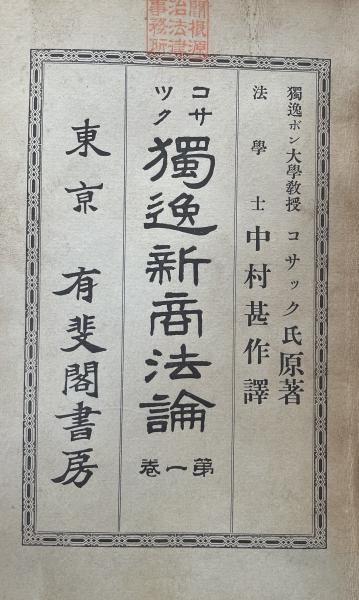 獨逸ボン大學敎授 コサック氏原著
法學士 中村甚作譯
コサック
獨逸新商法論
第一卷
東京 有斐閣書房
關根源治法律事務所